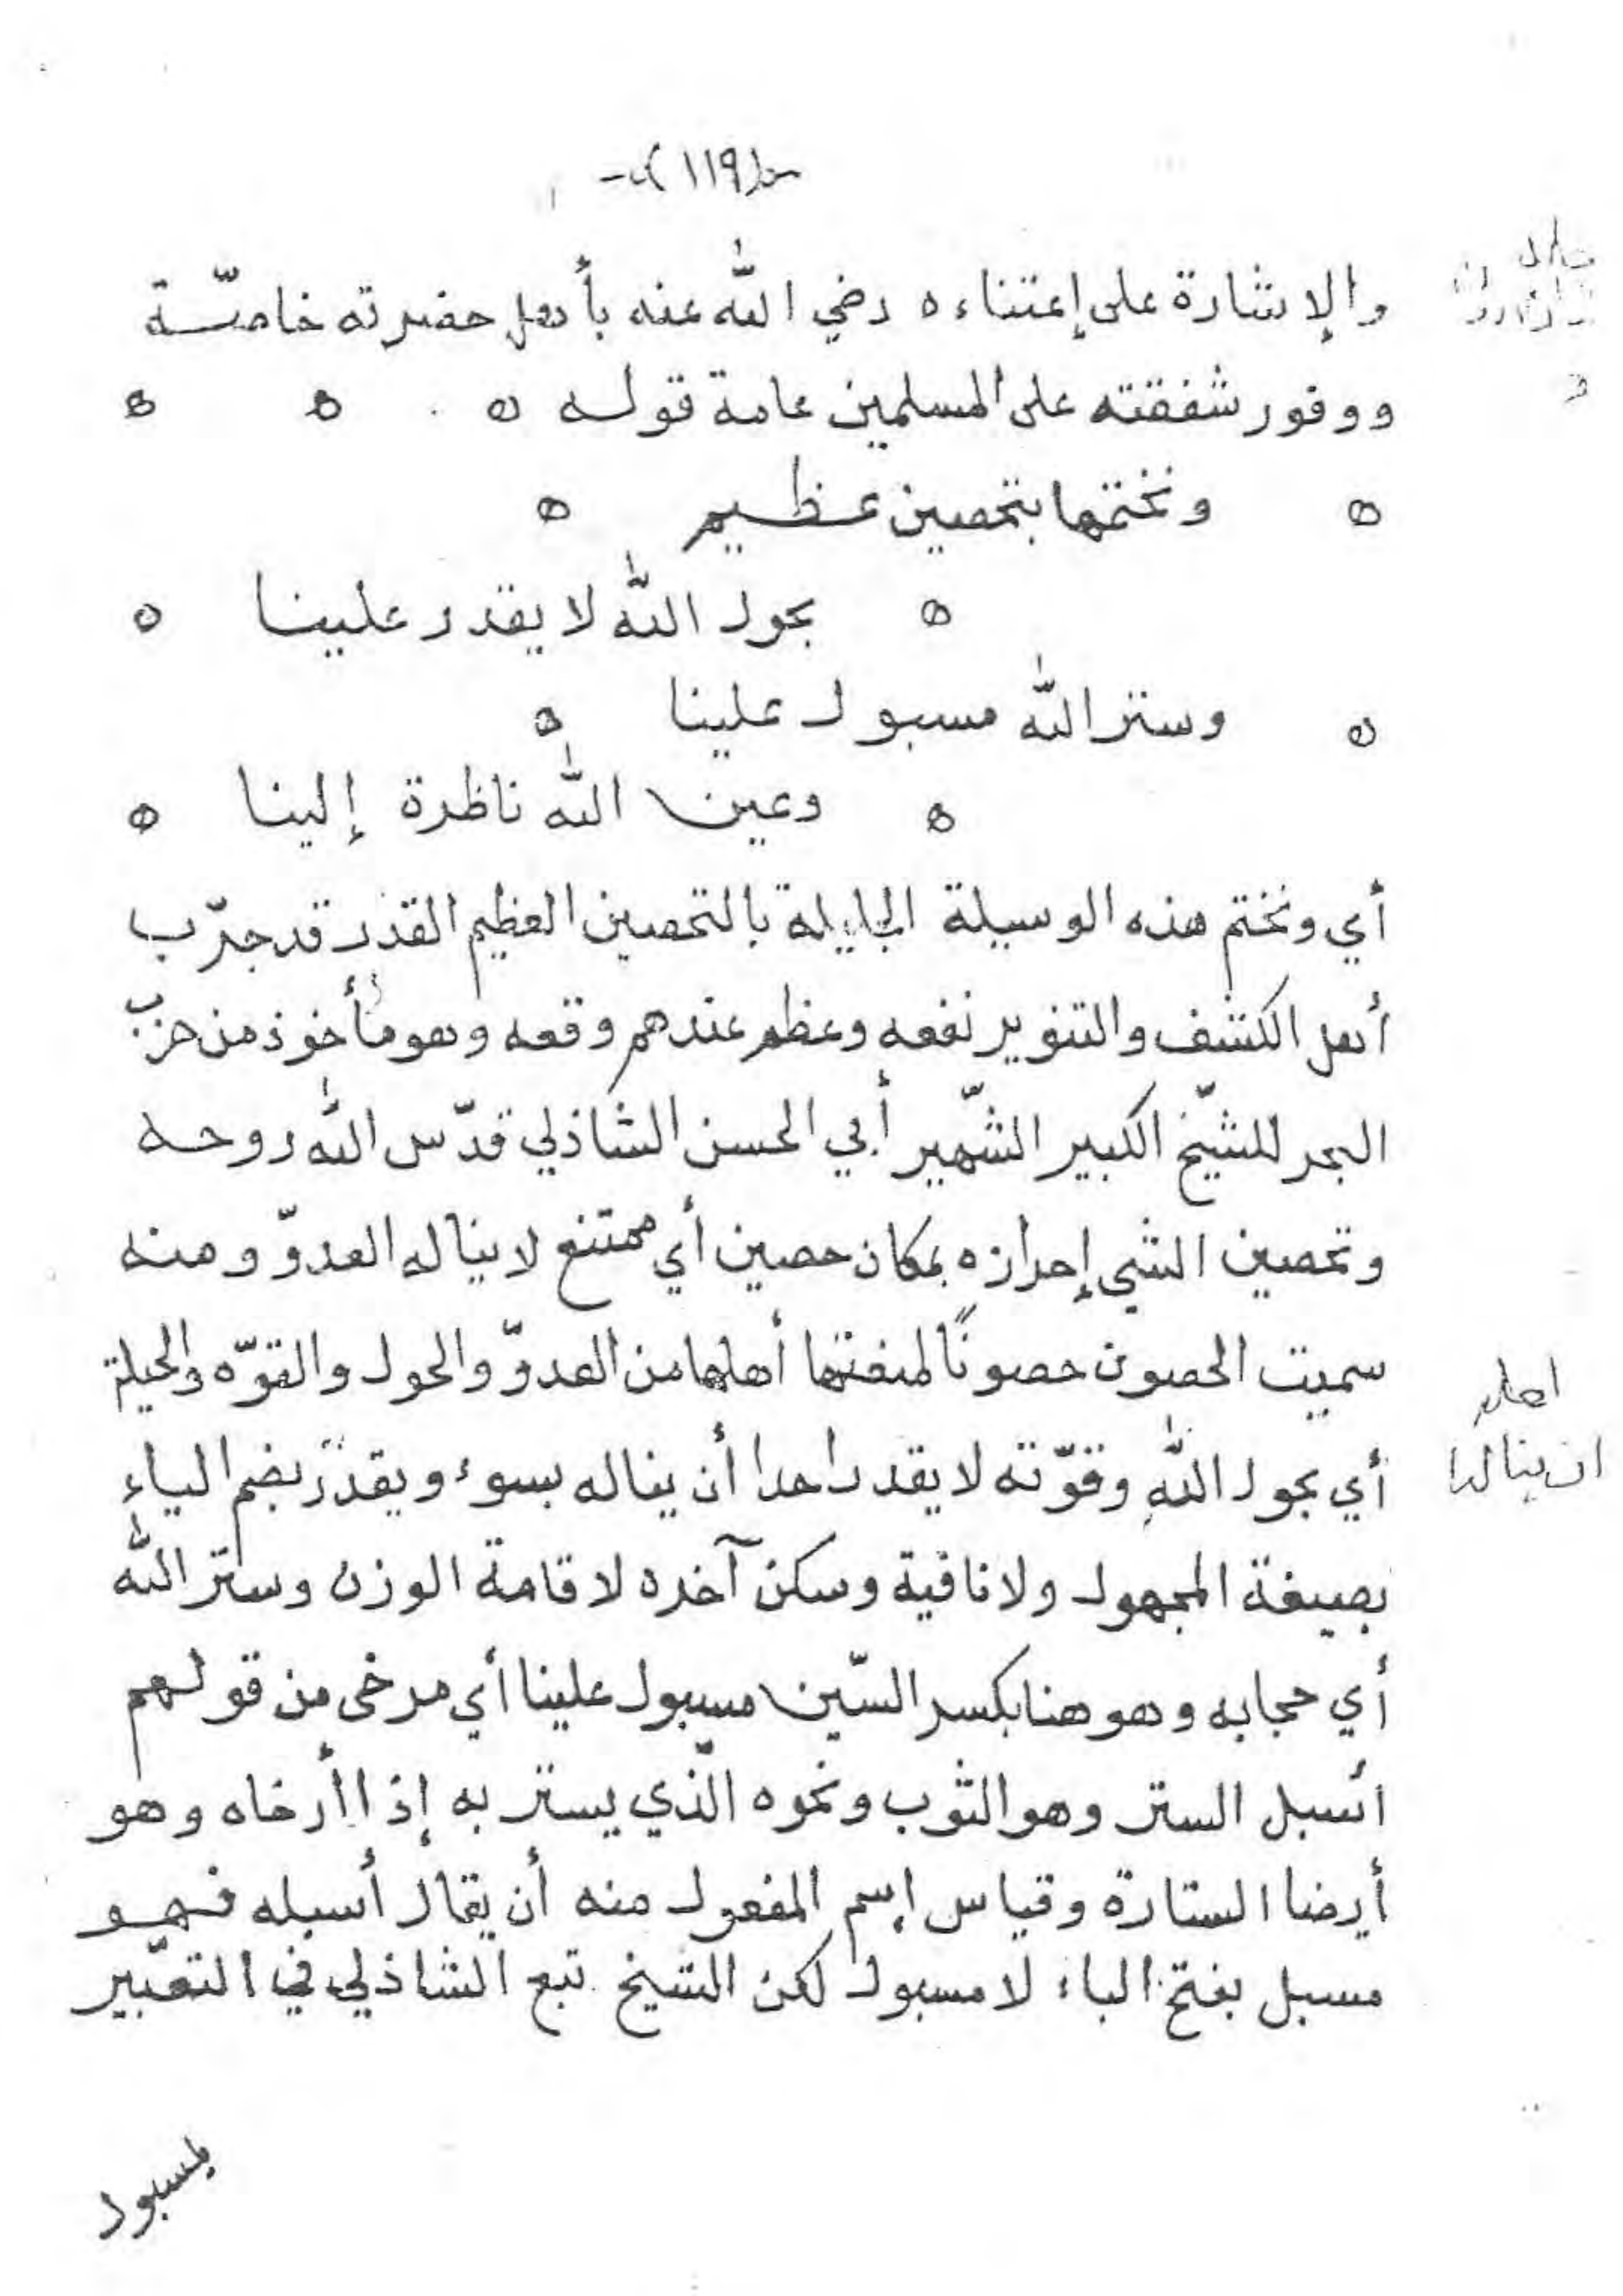 (١١٩)
والإشارة على إعتناءه رضي الله عنه بأهل حضرته خاصّة
ووفور شفقته على المسلمين عامة قوله
ونختمها بتحصين عظيم
بحول الله لا يقدر علينا
وستر الله مسبول علينا
وعين الله ناظرة إلينا
أي ونختم هذه الوسيلة الجليلة بالتحصين العظيم القدر قد جرّب
أهل الكشف والتنوير نفعه وعظم عندهم وقعه وهو مأخوذ من حزب
البحر للشيّخ الكبير الشّهير أبي الحسن الشاذلي قدّس الله روحه
وتحصين الشي إحرازه بمكان حصين أي ممتنع لا يناله العدوّ ومنه
سميت الحصون حصونًا لمنعتها أهلها من العدوّ والحول والقوّه والحيلة
أي بحول الله وقوّته لا يقدر احدا أن يناله بسوء ويقدر بضم الياء
بصيغة المجهول ولا نافية وسكن آخره لاقامة الوزن وستر الله
أي حجابه وهو هنا بكسر السّين مسبول علينا أي مرخى من قولهم
أسبل الستر وهو الثوب ونحوه الّذي يستر به إذا أرخاه وهو
أيضا الستارة وقياس إسم المفعول منه أن يقال أسبله فهو
مسبل بفتح الباء لا مسبول لكن الشيخ تبع الشاذلي في التعبير
ان ينالنا
بمسبول